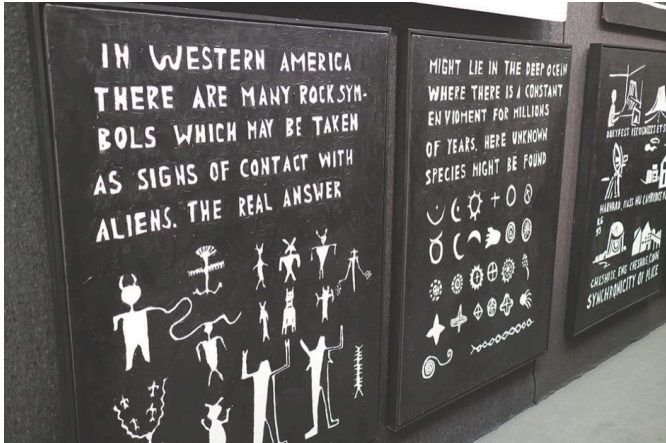 IN WESTERN AMERICA
THERE ARE MANY ROCK SYM-
BOLS WHICH MAY BE TAKEN
AS SIGNS OF CONTACT WITH
ALIENS. THE REAL ANSWER
MIGHT LIE IN THE DEEP OCEAN
WHERE THERE IS A CONSTANT
ENVIDMENT FOR MILLIONS
OF YEARS. HERE UNKNOWN
SPECIES MIGHT BE FOUND
DREYFEST RECOGNIZES ET'S
HARVARD, MASS HU CAMBRIDGE
CHESHIRE, ENG CHESHIRE, CONN
SYNCHRONICITY OF PLACE